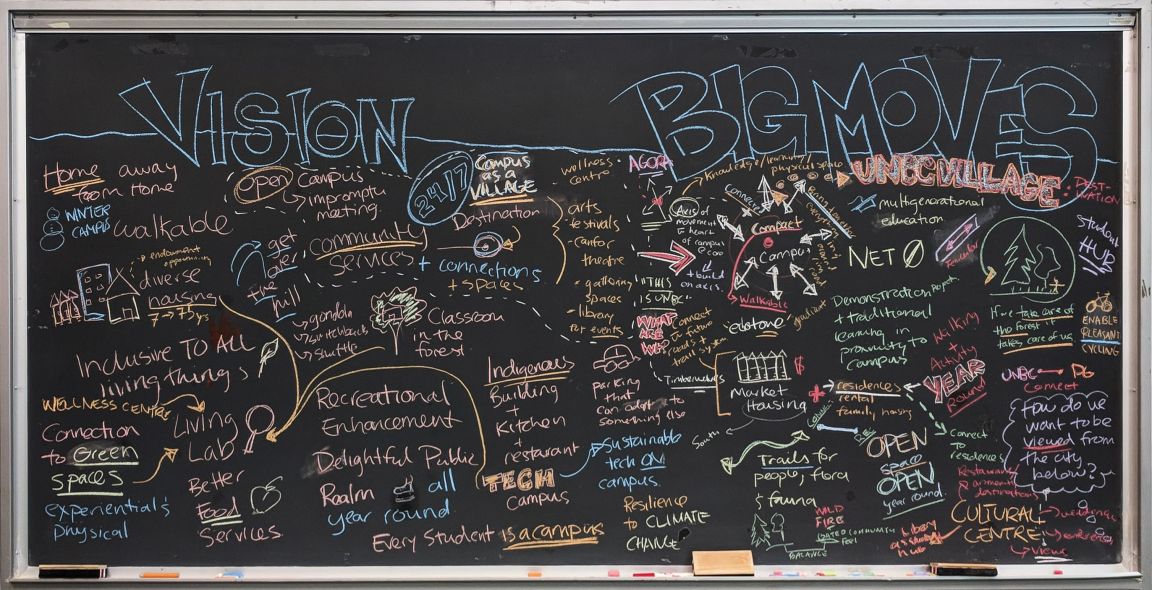 VISION
Home away
from Home
WINTER
CAMPUS
walkable
OPEN Campus
impromptu
meeting.
24/7
Campus
as a
VILLAGE
Destination
community
Services
+ connections
+ spaces
get
over
the
hill
gondola
switchbacks
shuttle
diverse
housing
7→75 yrs
Classroom
in the
forest
wellness
centre
arts
festivals
theatre
gathering
spaces
library
for events
Inclusive TO ALL
living things
WELLNESS CENTRE
Connection
to Green
spaces
experiential
physical
Living
Lab
Better
Food
Services
Recreational
Enhancement
Delightful Public
Realm all
year round
Every Student is a campus
Indigenous
Building
+
Kitchen
+
restaurant
TECH
Campus
sustainable
tech ON
campus.
Resilience
to CLIMATE
CHANGE
BIG MOVES
AGORA
Knowledge/learning/
physical space
UNBC VILLAGE
DEST-
INATION
multigenerational
education
Student
HUB
Axis of
movement
to heart
of campus
build
on axis.
Compact
Campus
Walkable
gradient
NET 0
"THIS
IS UNBC"
WHAT
ARE
WE?
Connect
to future
roads +
trail system
"edstone"
Demonstration
+ traditional
learning in
proximity to
campus
If we take care of
the forest it
takes care of us.
ENABLE
PLEASANT
CYCLING
parking
that
can adapt to
something else
Timberworks
Market
Housing
$
residences
rental
family housing
Walking
+
Activity
YEAR
Round
UNBC PG
Connect
South
Trails for
people, flora
& fauna
OPEN
space
OPEN
year round.
Connect
to
residences
Restaurants
destinations
How do we
want to be
viewed from
the city
below?
WILD
FIRE
BALANCE
CULTURAL
CENTRE
weddings
views